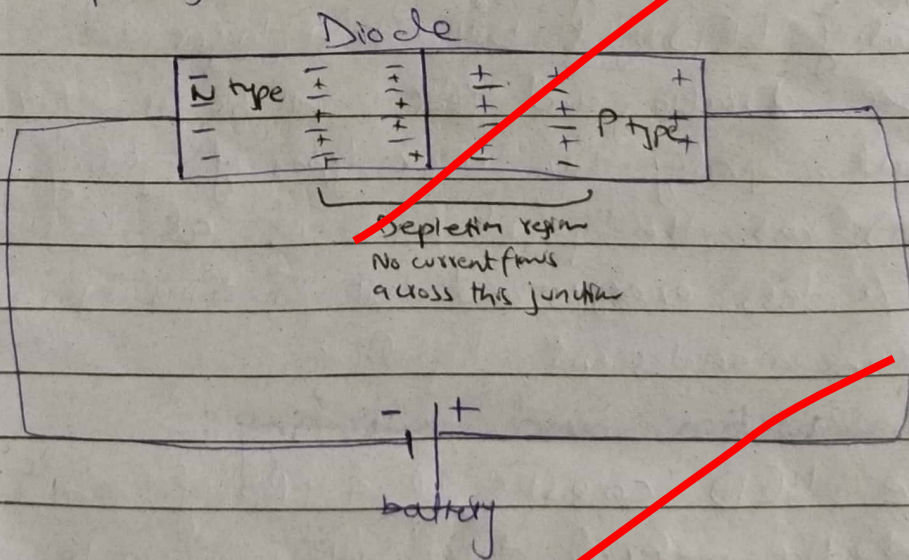 Diode
N type
P type
Depletion region
No current flows
across this junction
- +
battery